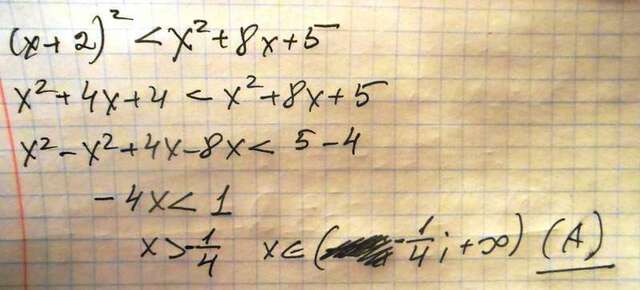 (x+2)² < x²+8x+5
x²+4x+4 < x²+8x+5
x²-x²+4x-8x< 5-4
-4x< 1
x>-1/4 x∈(-1/4; +∞) (A)